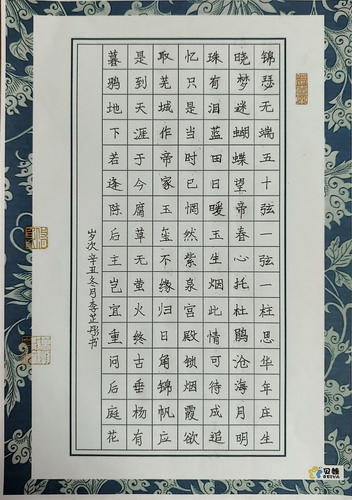 锦瑟无端五十弦一弦一柱思华年庄生
晓梦迷蝴蝶望帝春心托杜鹃沧海月明
珠有泪蓝田日暖玉生烟此情可待成追
忆只是当时已惘然紫泉宫殿锁烟霞欲
取芜城作帝家玉玺不缘归日角锦帆应
是到天涯于今腐草无萤火终古垂杨有
暮鸦地下若逢陈后主岂宜重问后庭花
岁次辛丑冬月李芷彤书